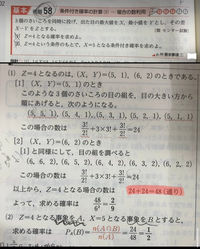 基本 例題 58 条件付き確率の計算(2) … 場合の数利用
3個のさいころを同時に投げ、出た目の最大値をX、最小値をYとし、その差
X−YをZとする。
(1) Z=4となる確率を求めよ。
(2) Z=4という条件のもとで、X=5となる条件付き確率を求めよ。
(1) Z=4となるのは、(X, Y)=(5, 1), (6, 2)のときである。
[1] (X, Y)=(5, 1)のとき
このような3個のさいころの目の組を、目の大きい方から
順にあげると、次のようになる。
(5, 5, 1), (5, 4, 1), (5, 3, 1), (5, 2, 1), (5, 1, 1)
この場合の数は 3!/2! +3×3!+ 3!/2! =24
[2] (X, Y)=(6, 2)のとき
[1]と同様にして、目の組を調べると
(6, 6, 2), (6, 5, 2), (6, 4, 2), (6, 3, 2), (6, 2, 2)
この場合の数は 3!/2! +3×3!+ 3!/2! =24
以上から、Z=4となる場合の数は 24+24=48 (通り)
よって、求める確率は 48/6³ = 2/9
(2) Z=4となる事象をA、X=5となる事象をBとすると、
求める確率は P_A(B)= n(A∩B)/n(A) = 24/48 = 1/2